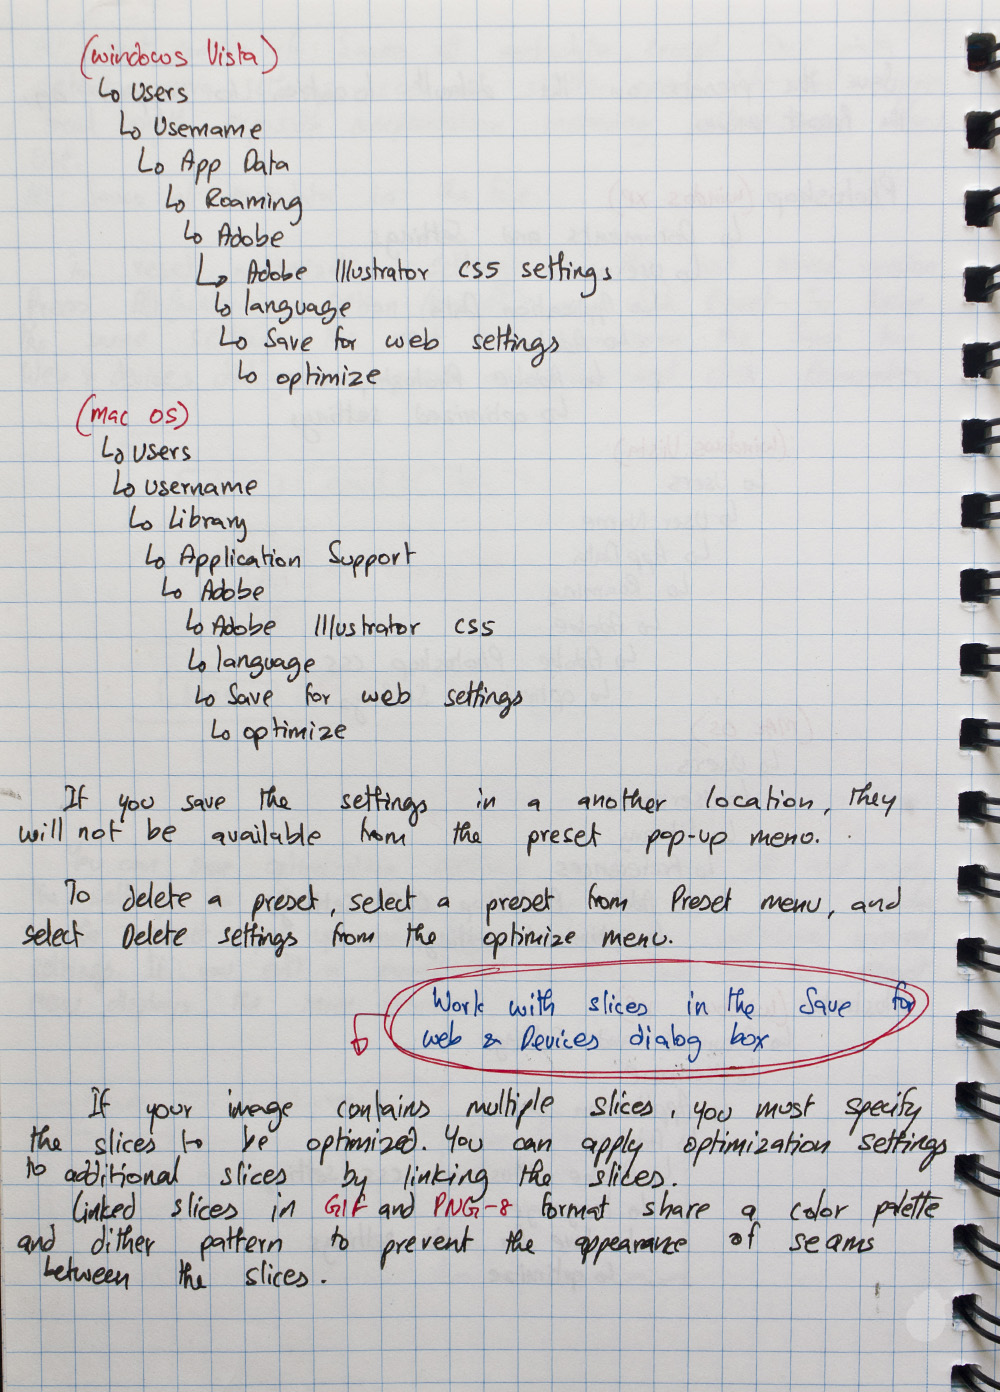 (windows Vista)
↳ Users
↳ Username
↳ App Data
↳ Roaming
↳ Adobe
↳ Adobe Illustrator CS5 settings
↳ language
↳ Save for web settings
↳ optimize
(mac os)
↳ Users
↳ username
↳ Library
↳ Application Support
↳ Adobe
↳ Adobe Illustrator CS5
↳ language
↳ Save for web settings
↳ optimize
If you save the settings in a another location, they
will not be available from the preset pop-up menu.
To delete a preset, select a preset from Preset menu, and
select Delete settings from the optimize menu.
Work with slices in the Save for
web & Devices dialog box
If your image contains multiple slices, you must specify
the slices to be optimized. You can apply optimization settings
to additional slices by linking the slices.
Linked slices in GIF and PNG-8 format share a color palette
and dither pattern to prevent the appearance of seams
between the slices.